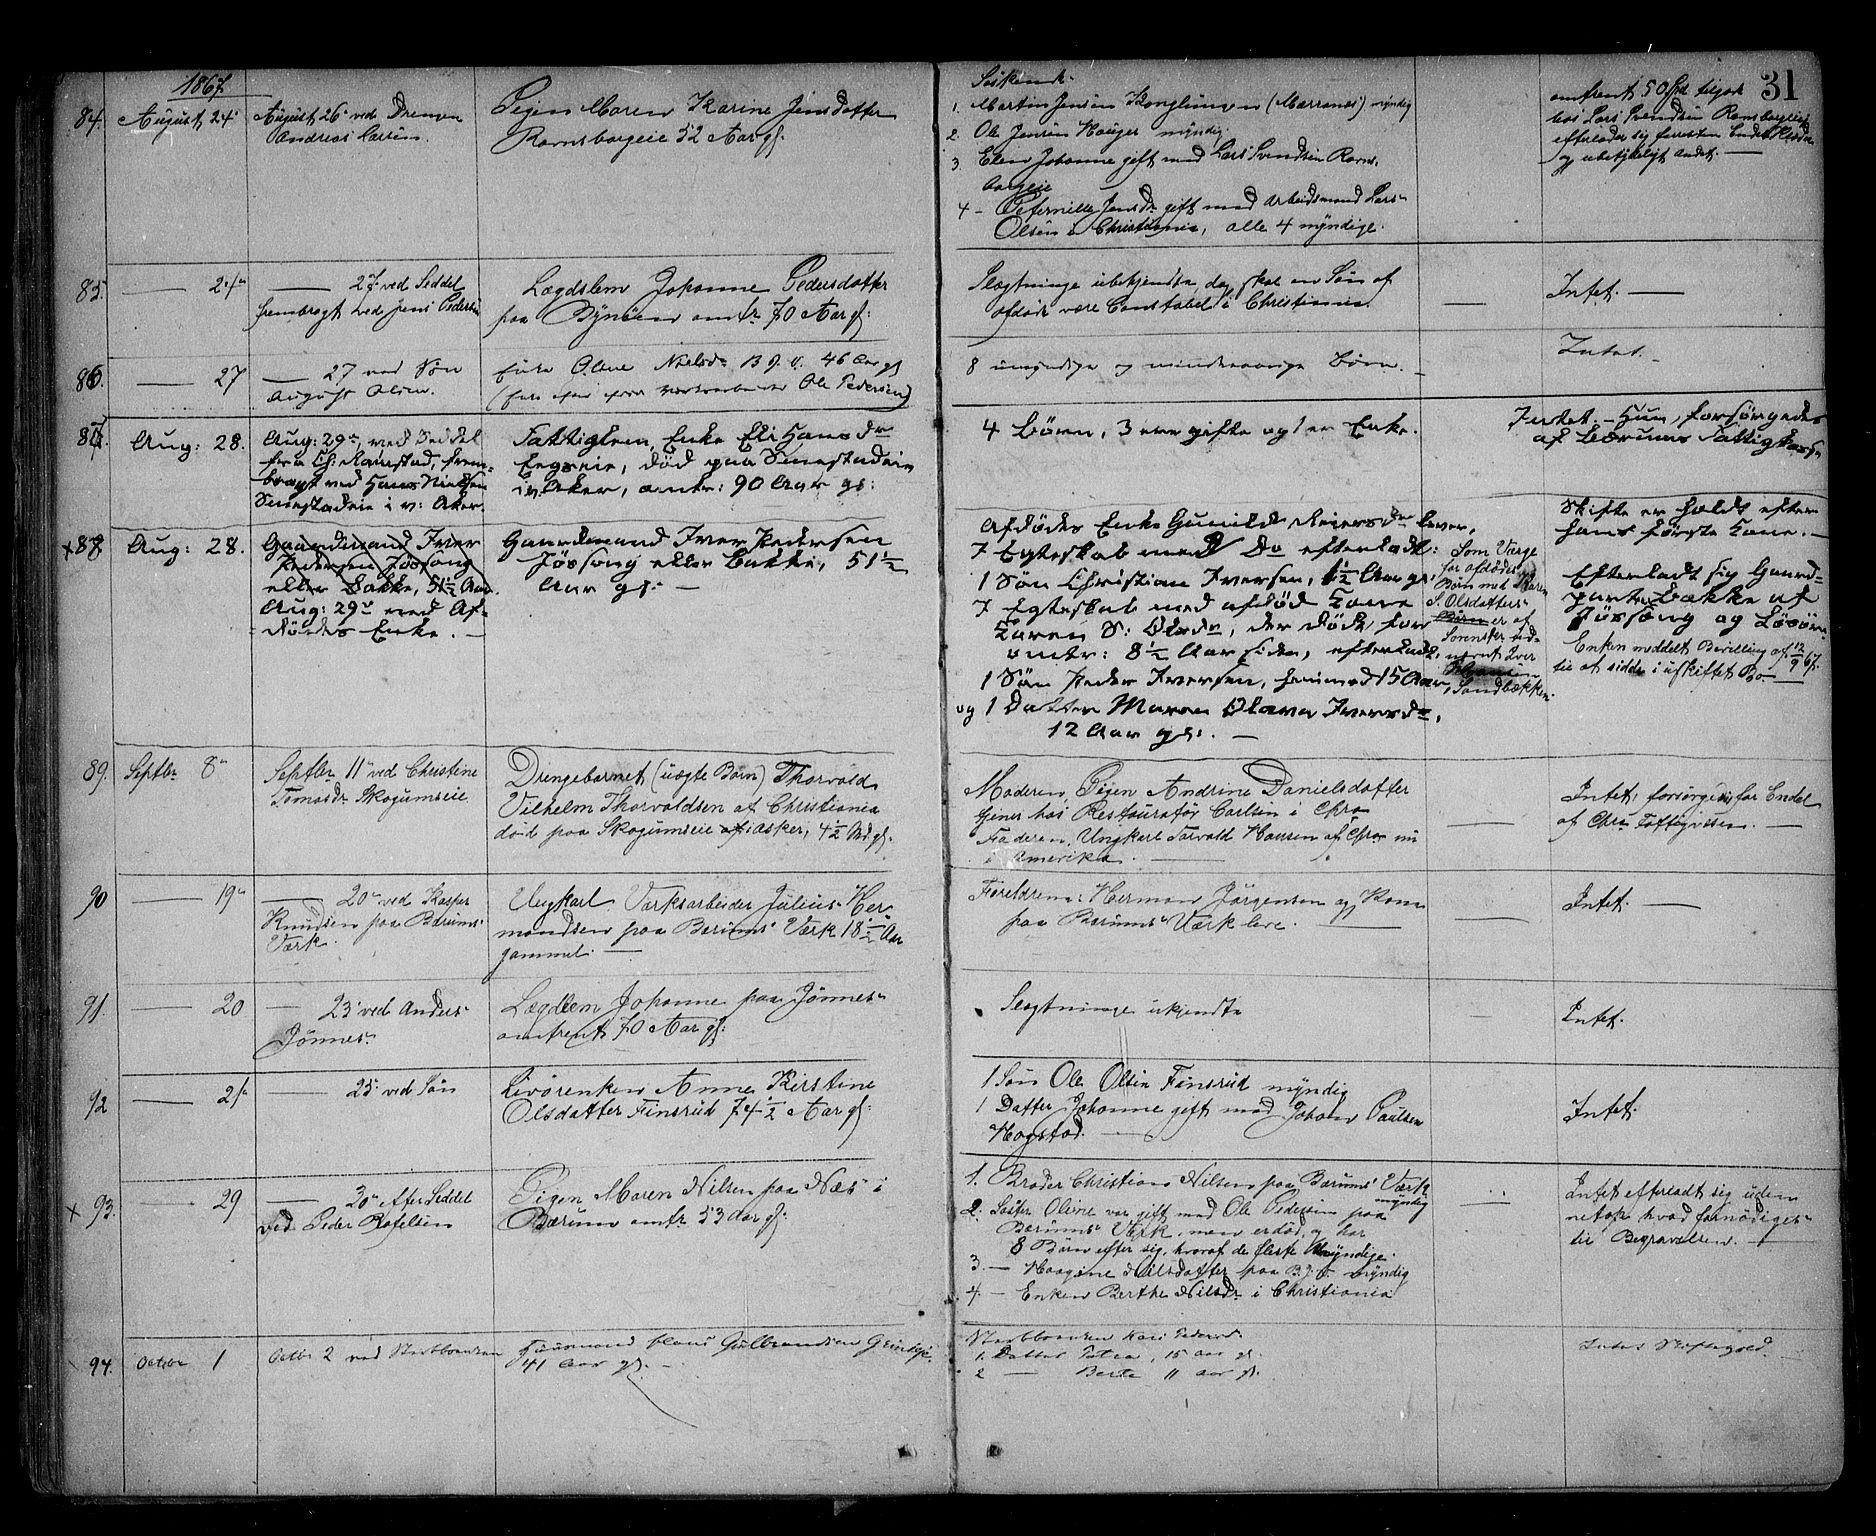 31
1867.
84. August 24
August 26 ved Drengen
Andreas Larsen.
Pigen Maren Karine Jensdatter
Ravnsborgeie 52 Aar gl.
Søskende.
1. Martin Jensen Konglungen (Marranæs) myndig
2. Ole Jensen Hauger myndig.
3. Elen Johanne gift med Lars Svendsen Ravns-
borgeie
4 - Pefernille Jensdr gift med Arbeidsmand Lars
Olsen i Christiania, alle 4 myndige.
omtrent 50 Spd tilgode
hos Lars Svendsen Ravnsborgeie
efterlader sig forresten Endel Klæder
og ubetydeligt andet. —
85. — 24
— 27 ved Seddel
frembragt ved Jens Pedersen
Lægdslem Johanne Pedersdatter
paa Bynæsen omtr 70 Aar gl:
Slægtninge ubekjendte, dog skal en Søn af
afdøde være Constabel i Christiania
—
Intet. —
86. — 27
— 27 ved Søn
August Olsen.
Enke Oline Nielsdr B. J. V. 46 Aar gl
(Enke efter Værksarbeider Ole Pedersen)
8 umyndige og mindreaarige Børn. —
Intet. —
87. Aug: 28.
Aug: 29de, ved Seddel
fra Ch: Ramstad, frem-
bragt ved Hans Nielsen
Smestadeie i v: Aker.
Fattiglem, Enke Eli Hansdr
Engseie, død paa Smestadeie
i v. Aker, omtr: 90 Aar gl:
4 Børn, 3 ere gifte og 1 er Enke.
Intet. – Hun forsørgedes
af Bærums Fattigkasse
x 88 Aug: 28.
Gaardmand Iver
Pedersen Jøssong
eller Bakke, 51½ Aar.
Aug: 29de ved Af-
dødes Enke. —
Gaardmand Iver Pedersen
Jøssong eller Bakke, 51½
Aar gl: —
Afdødes Enke Gunild Reiersdr lever,
I Egteskab med Do efterladt:
1 Søn Christian Iversen, 1½ Aar gl;
I Egteskab med afdød Kone
Karen S: Olsdr, der døde for
omtr: 8½ Aar siden, efterladt,
1 Søn Peder Iversen, henimod 15 Aar,
og 1 Datter Maren Olava Iversdr,
12 Aar gl: . —
Som Værge
for afdødes
Børn med Karen
S. Olsdatter
Børn er af
Sorenskr. ud-
nævnt Iver
Sandbækken.
Skifte er holdt efter
hans første Kone. —
Efterladt sig Gaard-
parten Bakke af
Jøssong og Løsøre
Enken meddelt Bevilling af 12/9 67.
til at sidde i uskiftet Bo —
89. Septbr 8
Septbr 11 ved Christine
Tomasdr Skogumseie
Drengebarnet (uægte Barn) Thorvald
Vilhelm Thorvaldsen af Christiania
død paa Skogumseie i Asker, 4½ Aar gl.
Moderen Pigen Andrine Danielsdatter
tjener hos Restauratør Carlsen i Chra
Faderen, Ungkarl Torvald Hansen af Chra nu
i Amerika. —
—
Intet, forsørgedes for Endel
af Chra Fattigvæsen. —
90 — 19
— 20 ved Kasper
Knudsen paa Bærums
Værk.
Ungkarl Værksarbeider Julius Her
mandsen paa Bærums Værk 18½ Aar
gammel —
Forældrene: Herman Jørgensen og Kone
paa Bærums Værk leve. —
—
Intet. —
91 — 20
— 23 ved Anders
Jønnes
Lægdlem Johanne paa Jønnes
omtrent 70 Aar gl:
Slægtninge ukjendte
—
Intet.
92 — 21
— 23 ved Søn
Livørenken Anne Kirstine
Olsdatter Finsrud 74½ Aar gl:
1 Søn Ole Olsen Finsrud myndig
1 Datter Johanne gift med Johan Paulsen
Hagstad. —
Intet.
x 93. — 29
— 30 efter Seddel
ved Peder Rafelsen
Pigen Maren Nilsen paa Næs i
Bærum omtr 53 Aar gl.
1. Broder Christian Nilsen paa Bærums Værk
myndig
2. Søster Oline var gift med Ole Pedersen paa
Bærums Værk, men er død, og har
8 Børn efter sig, hvoraf de fleste umyndige.
3. — Haagine Nilsdatter paa B. J. V. myndig
4. — Enken Berthe Nilsdr i Christiania
—
Intet efterladt sig uden
netop hvad fornødiges
til Begravelsen. —
94. Octobr 1
Octbr 2 ved Stervboenken
Huusmand Hans Gulbrandsen
41 Aar gl. —
Stervboenken Kari Pedersd.
1. Datter Petra, 15 Aar gl.
2 — Berte 11 Aar gl.
Intet Skiftegods.